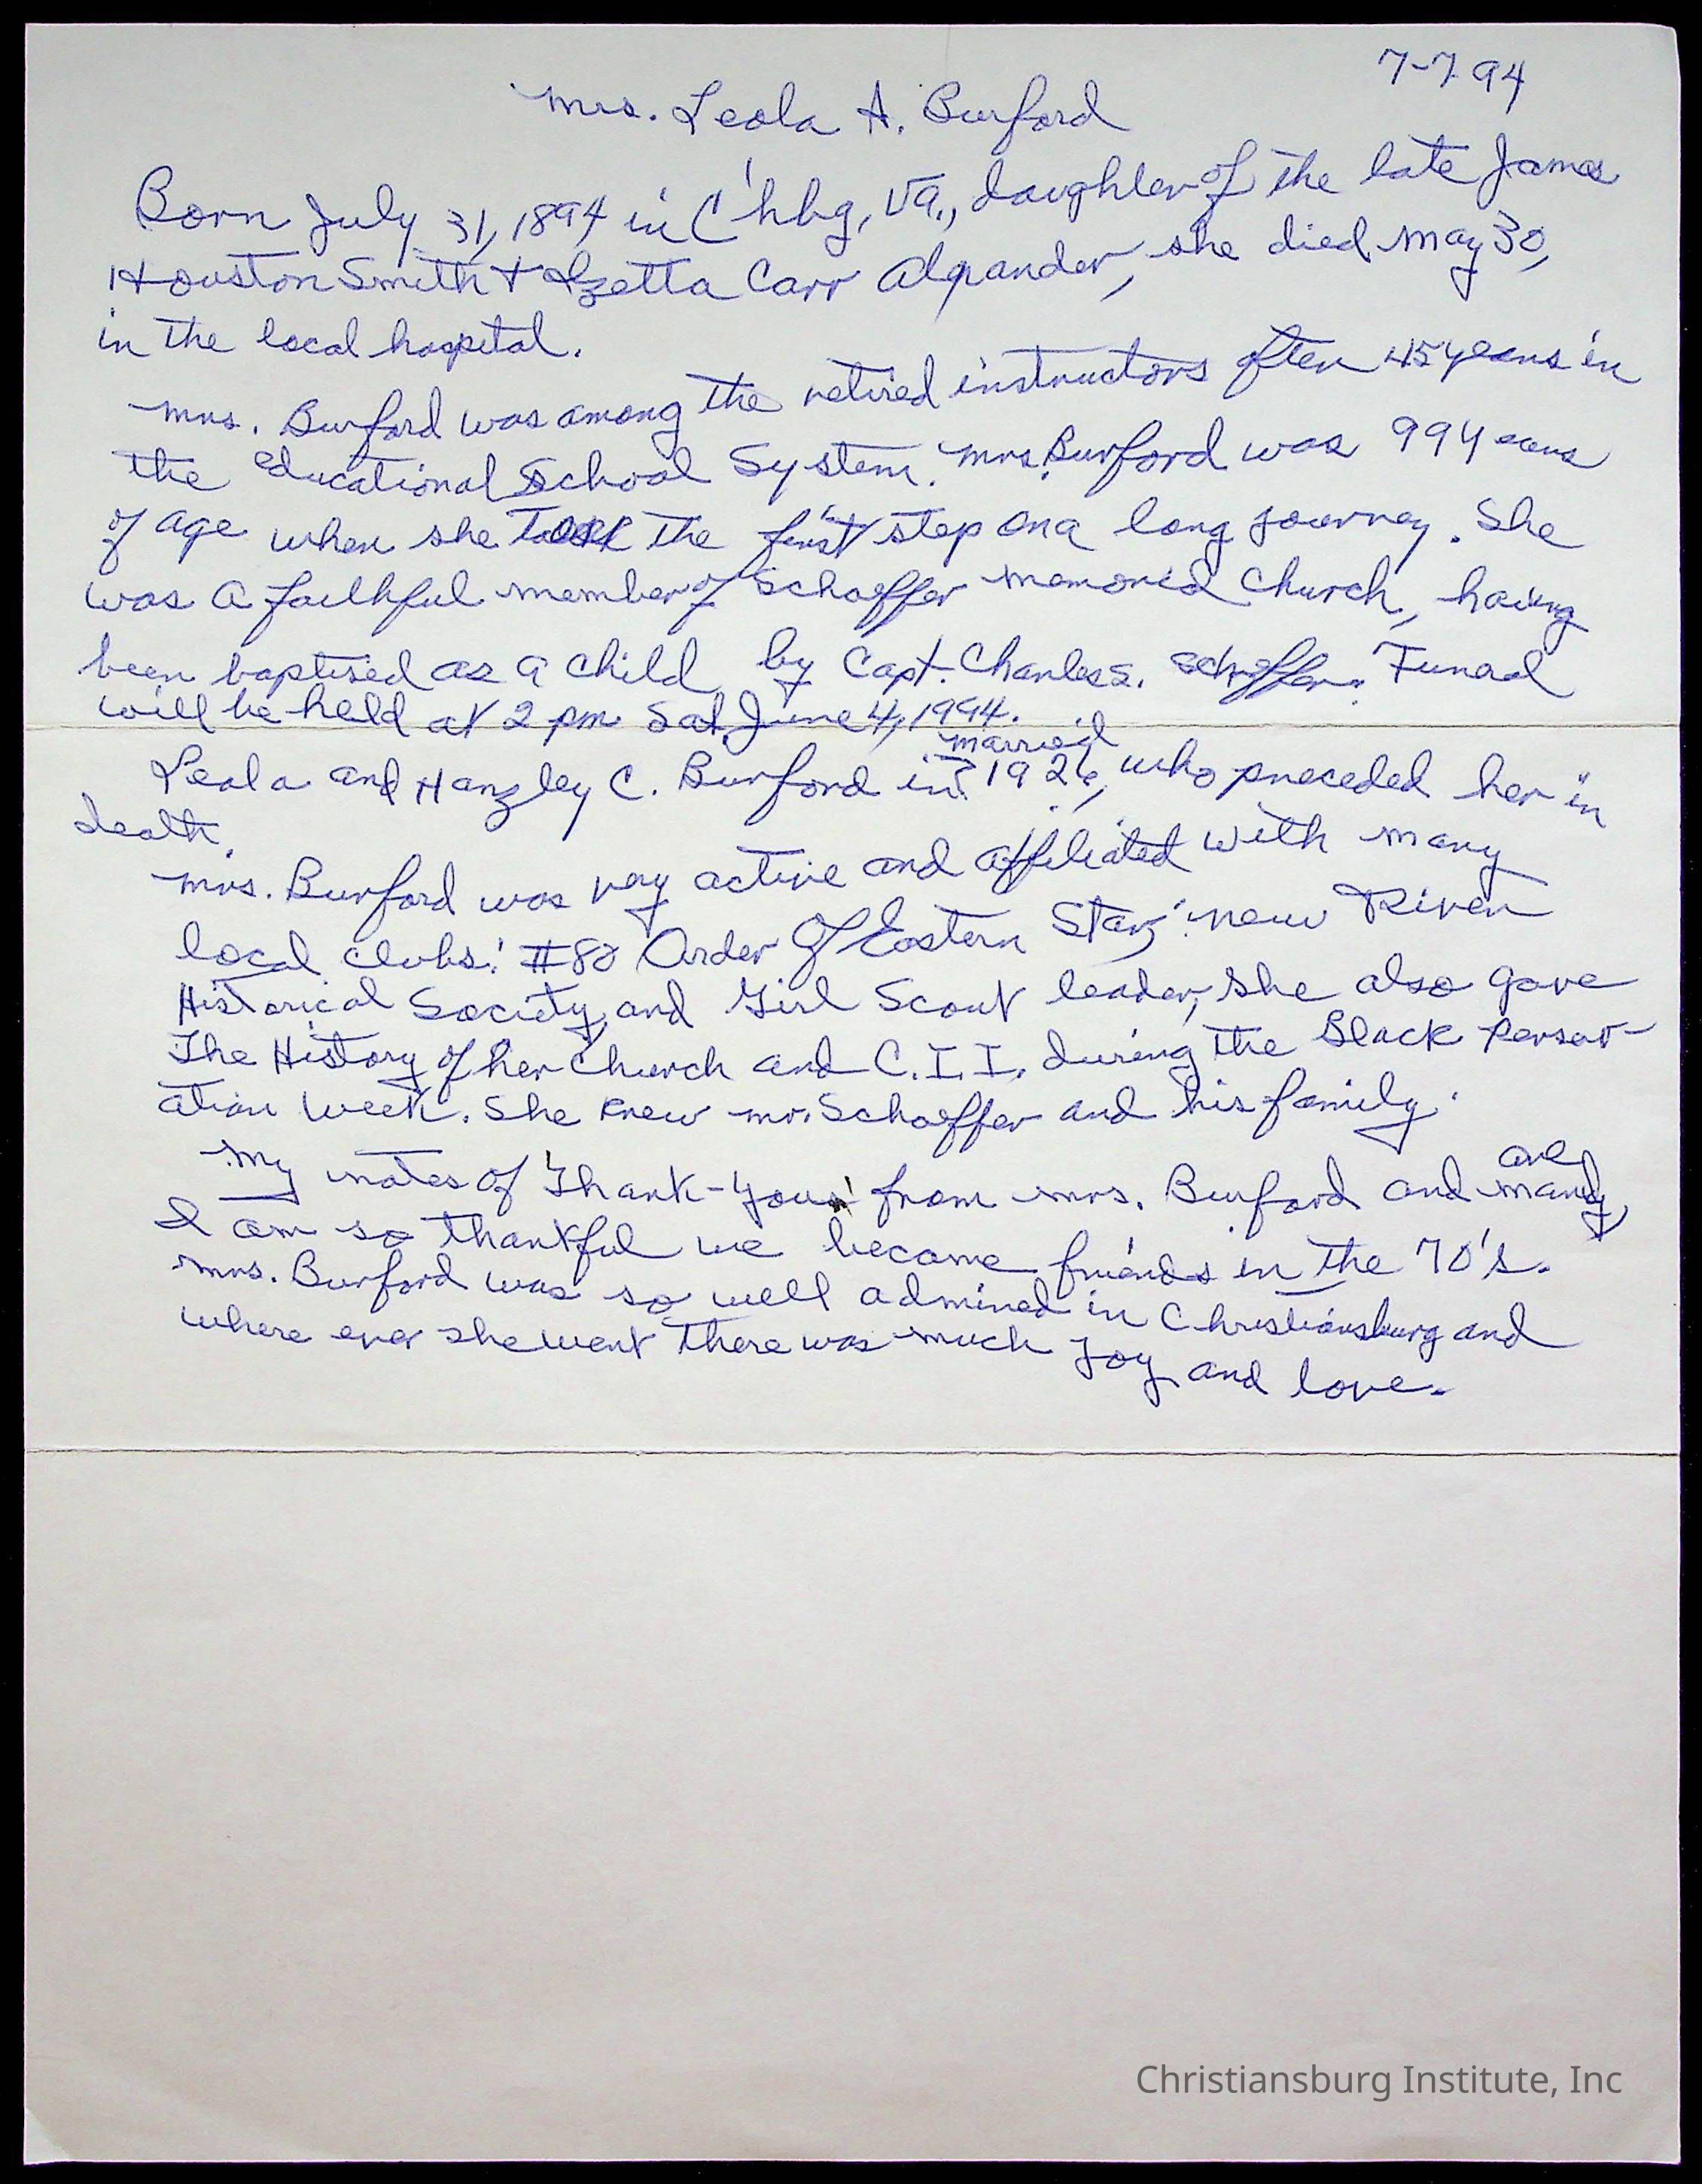 7-7 94
Mrs. Leola A. Burford
Born July 31, 1894 in C'hbg, Va., daughter of the late James
Houston Smith + Izetta Carr Alexander, she died May 30,
in the local hospital.
Mrs. Burford was among the retired instructors after 45 years in
the educational School System. Mrs. Burford was 99 years
of age when she took the first step on a long journey. She
was a faithful member of Schaeffer Memorial Church, having
been baptised as a child by Capt. Charles S. Schaeffer. Funeral
will be held at 2 pm Sat, June 4, 1994.
married
Leola and Hanzley C. Burford in 1926, who preceded her in
death.
Mrs. Burford was very active and affiliated with many
local clubs: #80 Order Of Eastern Star, New River
Historical Society, and Girl Scout leader, she also gave
The History of her Church and C.I.I. during the Black
ation Week. She knew Mr. Schaeffer and his family.
are
My notes of 'Thank-Yous' from Mrs. Burford and many,
I am so thankful we became friends in the 70's.
Mrs. Burford was so well admired in Christiansburg and
where ever she went there was much joy and love.
Christiansburg Institute, Inc